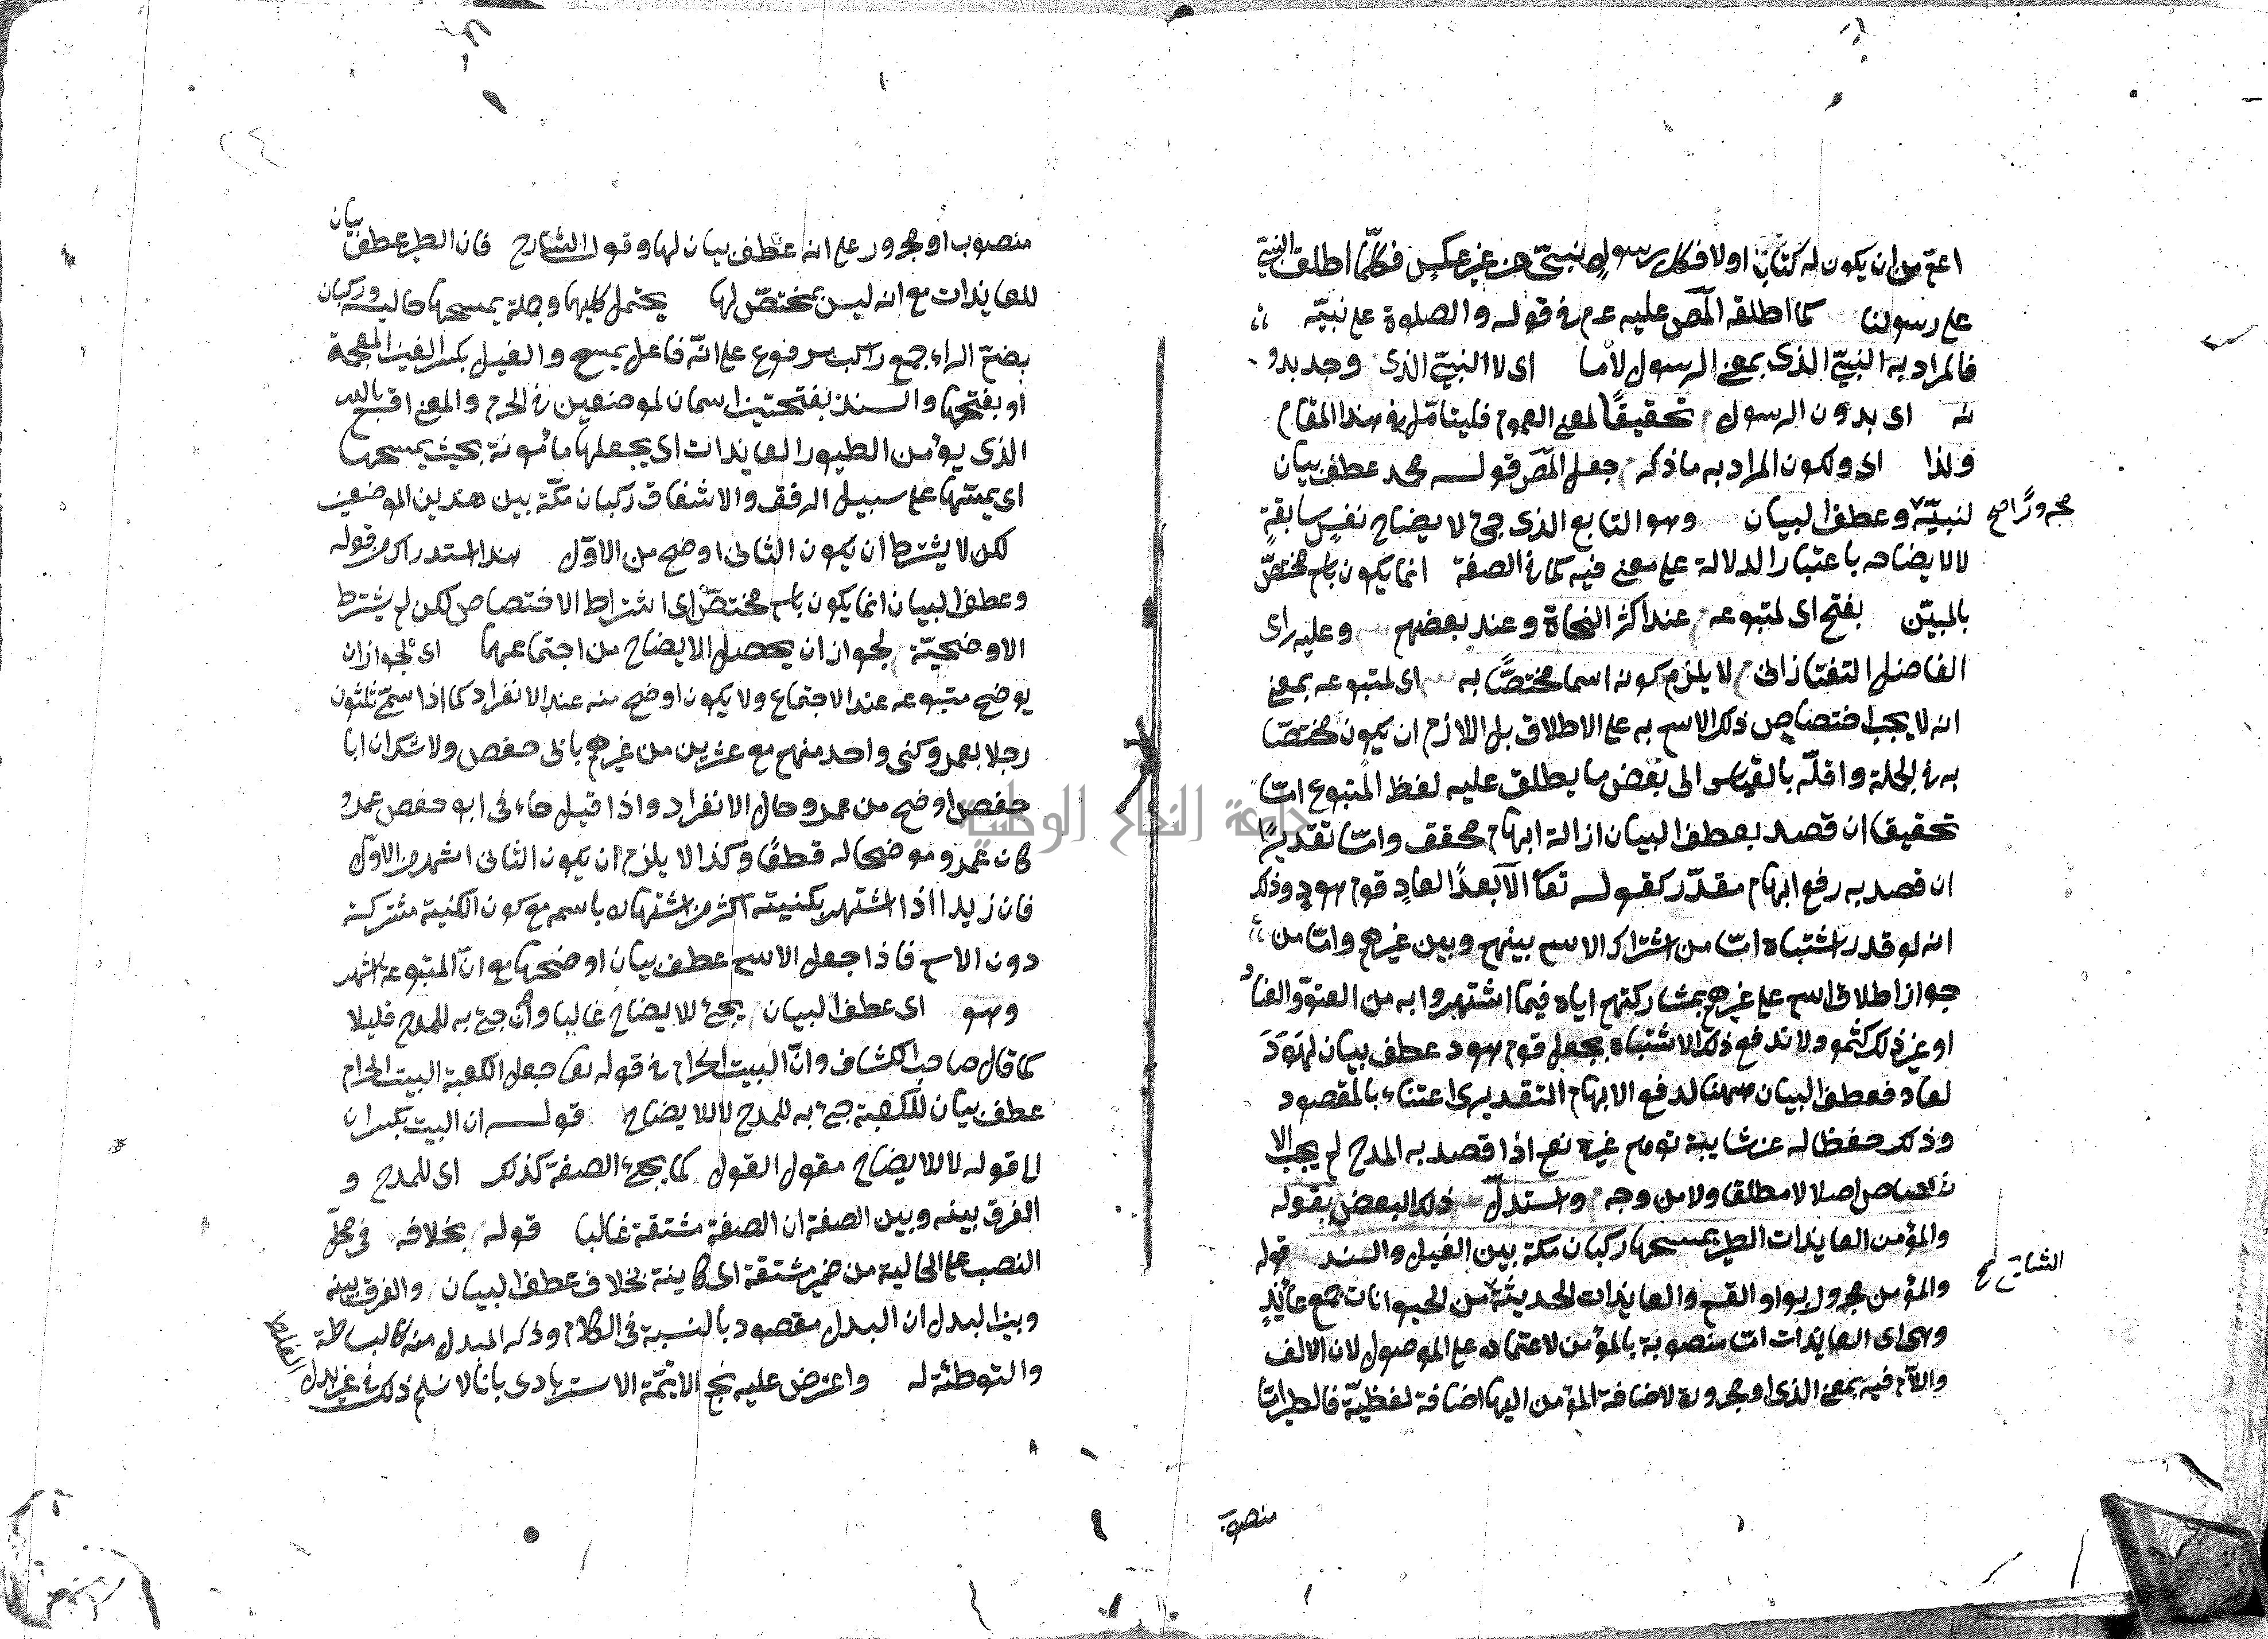 اعمّ من ان يكون له كتاب اولا فكل رسول نبىّ من غير عكس فكلّما اطلق النبىّ
على رسولنا كما اطلقه المص عليه عم فى قوله والصلوة على نبيّه
فالمراد به النبىّ الذى بمعنى الرسول لا ما اى لا النبىّ الذى وجد بدو
نه اى بدون الرسول تحقيقًا لمعنى العموم فليتأمّل فى هذا المقام
ولذا اى ولكون المراد به ما ذكر جعل المص قوله محمد عطف بيان
لنبيّه وعطف البيان وهو التابع الذى جئ لايضاح نفس سابقه
مجرورًا صح
لا لايضاحه باعتبار الدلالة على معنى فيه كما فى الصفة انما يكون باسم مختصّ
بالمبيّن بفتح اى لمتبوعه عند اكثر النحاة وعند بعضهم وعليه راى
الفاضل التفتازانى لا يلزم كونه اسما مختصًّا به اى لمتبوعه بمعنى
انه لا يجب اختصاص ذلك الاسم به على الاطلاق بل اللازم ان يكون مختصّا
به فى الجملة واقلّه بالقياس الى بعض ما يطلق عليه لفظ المتبوع امّا
تحقيقا ان قصد بعطف البيان ازالة ابهام محقق وامّا تقديرًا
ان قصد به رفع ابهام مقدّر كقوله تعا الا بعدًا لعادٍ قوم هودٍ وذلك
انه لو قدر اشتباه امّا من اشتراك الاسم بينهم وبين غيرهم وامّا من
جواز اطلاق اسم على غيرهم بمشاركتهم اياه فيما اشتهروا به من العتوّ والعناد
او غير ذلك كثمود لاندفع ذلك الاشتباه بجعل قوم هود عطف بيان
لعاد فعطف البيان ههنا لدفع الابهام التقديرى اعتناء بالمقصود
وذلك حفظا له عن شايبة توهم غيره نعم اذا قصد به المدح لم يجب الا
ختصاص اصلا لا مطلقا ولا من وجه واستدلّ ذلك البعض بقوله
والمؤمن العايذات الطير يمسحها ركبان مكة بين الغيل والسند قوله
الشايع
والمؤمن مجرور بواو القسم والعايذات الحديثة من الحيوانات جمع عائذٍ
وهى اى العايذات امّا منصوبة بالمؤمن لاعتماده على الموصول لان الالف
واللام فيه بمعنى الذى او مجرورة لاضافة المؤمن اليها اضافة لفظيّة فالطير امّا
منصوب
منصوب او مجرور على انه عطف بيان لها وقول الشارح فان الطير عطف بيان
للعايذات مع انه ليس بمختصّ لها يحتمل كليهما وجملة يمسحها حالية وركبان
بضمّ الراء جمع راكب مرفوع على انّه فاعل يمسح والغيل بكسر الغين المعجمة
او بفتحها والسند بفتحتين اسمان لموضعين فى الحرم والمعنى اقسم بالله
الذى يؤمن الطيور العايذات اى يجعلها مأمونة بحيث يمسحها
اى يمسّها على سبيل الرفق والاشفاق ركبان مكّة بين هذين الموضعين
لكن لا يشترط ان يكون الثانى اوضح من الاوّل هذا استدراك من قوله
وعطف البيان انما يكون باسم مختصّ اى اشتراط الاختصاص لكن لم يشترط
الاوضحيّة لجواز ان يحصل الايضاح من اجتماعهما اى لجواز ان
يوضح متبوعه عند الاجتماع ولا يكون اوضح منه عند الانفراد كما اذا سمّى ثلثون
رجلا بعمرو وكنى واحد منهم مع عشرين من غيرهم بابى حفص ولا شك ان ابا
حفص اوضح من عمرو حال الانفراد واذا قيل جاءنى ابو حفص عمرو
كان عمرو موضحا له قطعًا وكذا لا يلزم ان يكون الثانى اشهر من الاوّل
فان زيدا اذا اشتهر بكنيته اكثر من اشتهاره باسمه مع كون الكنية مشتركة
دون الاسم فاذا جعل الاسم عطف بيان اوضحها مع انّ المتبوع اشهر
وهو اى عطف البيان يجئ للايضاح غالبا وان جئ به للمدح قليلا
كما قال صاحب الكشاف وانّ البيت الحرام فى قوله تعا جعل الكعبة البيت الحرام
عطف بيان للكعبة جئ به للمدح لا للايضاح قوله ان البيت بكسر ان
الى قوله لا للايضاح مقول القول كما يجئ الصفة كذلك اى للمدح و
الفرق بينه وبين الصفة ان الصفة مشتقة غالبا قوله بخلافه فى محلّ
النصب على الحالية من ضمير مشتقة اى كاينة بخلاف عطف البيان والفرق بينه
وبين البدل ان البدل مقصود بالنسبة فى الكلام وذكر المبدل منه كالبساطة
والتوطئة له واعترض عليه نجم الائمّة الاسترابادى بانا لا نسلم ذلك فى غير بدل
الغلط